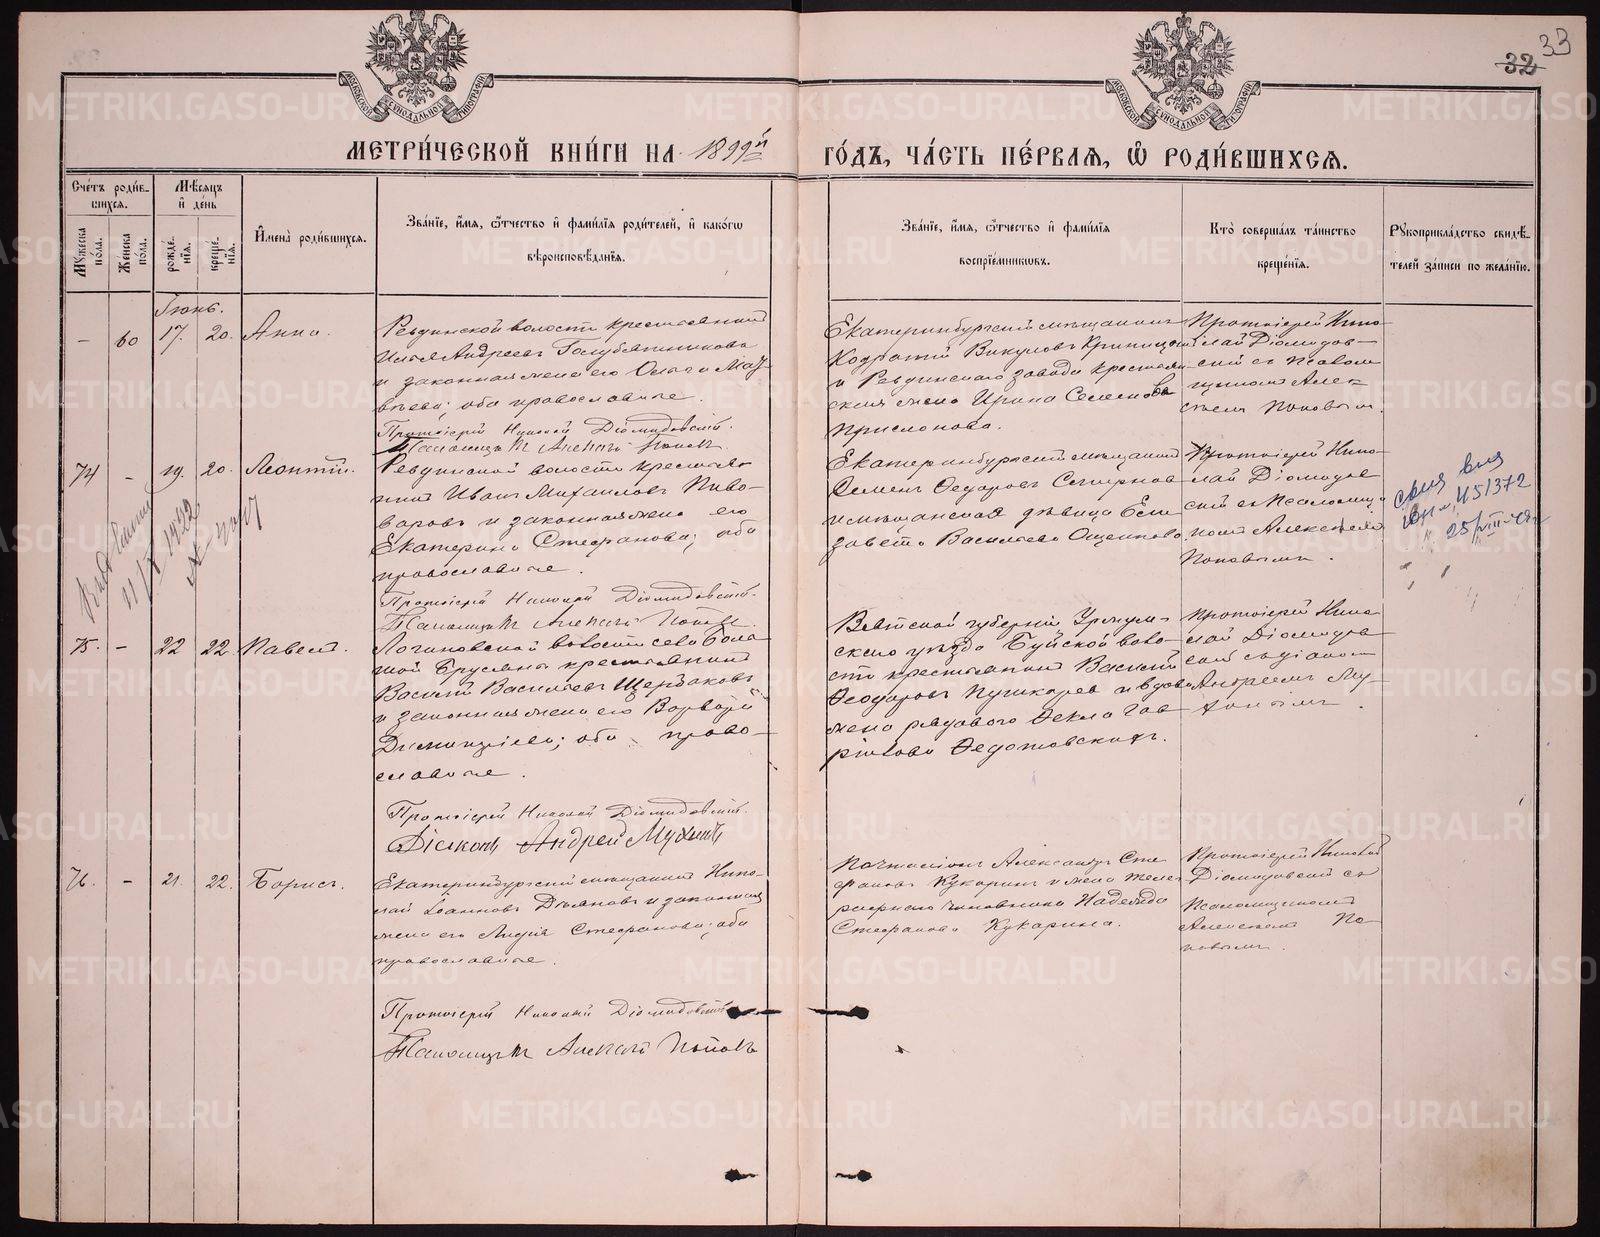 33
32
МОСКОВСКОЙ СѴНОДАЛЬНОЙ ТИПОГРАФІИ
МОСКОВСКОЙ СѴНОДАЛЬНОЙ ТИПОГРАФІИ
МЕТРИ́ЧЕСКОЙ КНИ́ГИ НА 1899й ГО́ДЪ, ЧА́СТЬ ПЕ́РВАЯ, Ѡ҆ РОДИ́ВШИХСЯ.
Сче́тъ роди́вшихся.
Мꙋ́жеска по́ла.
Же́нска по́ла.
Мѣ́сяцъ и҆ де́нь
рожде́нїя.
креще́нїя.
И҆мена̀ роди́вшихся.
Зва́нїе, и҆́мя, ѻ҆́тчество и҆ фами́лїя роди́телей, и҆ како́гѡ вѣроисповѣ́данїя.
Зва́нїе, и҆́мя, ѻ҆́тчество и҆ фами́лїя воспрїе́мникѡвъ.
Кто̀ соверша́лъ та́инство креще́нїя.
Рꙋкоприкла́дство свидѣ́телей за́писи по жела́нїю.
Іюнь.
- 60 17. 20. Анна.
Ревдинской волости крестьянинъ
Илья Андреевъ Голубятниковъ
и законная жена его Ольга Мат-
вѣева; оба православные.
Протоіерей Николай Діомидовскій.
Псаломщикъ Алексѣй Поповъ
Екатеринбургскій мѣщанинъ
Кодратій Викуловъ Криницын
и Ревдинскаго завода крестьян-
ская жена Ирина Семенова
Присмонова.
Протоіерей Нико-
лай Діомидов-
скій съ Псалом-
щикомъ Алек-
сѣемъ Поповымъ.
74 - 19. 20. Леонтій.
Ревдинской волости крестья-
нинъ Иванъ Михаиловъ Пиво-
варовъ и законная жена его
Екатерина Стефанова; оба
православные.
Протоіерей Николай Діомидовскій.
Псаломщикъ Алексѣй Поповъ.
Екатеринбургскій мѣщанинъ
Семенъ Федоровъ Смирнов
и мѣщанская дѣвица Ели-
завета Васильева Ощепкова.
Протоіерей Нико-
лай Діомидов
скій съ Псаломщи
комъ Алексѣемъ
Поповымъ.
451372
25/VIII-48г
11/X 1922
75. - 22 22. Павелъ.
Логиновской волости села Боль
шой Брусяны крестьянинъ
Василій Васильевъ Щербаковъ
и законная жена его Варвара
Димитріева; оба право-
славные.
Протоіерей Николай Діомидовскій.
Діаконъ Андрей Мухинъ
Вятской губерніи Уржум-
скаго уѣзда Буйской воло-
сти крестьянинъ Василій
Феодоровъ Пушкаревъ и вдова
жена рядового Фекла Гав
рилова Федотовскихъ.
Протоіерей Нико-
лай Діомидов
скій съ діакон
Андреемъ Му-
хинымъ.
76. - 21. 22. Борисъ.
Екатеринбургскій мѣщанинъ Нико-
лай Іоанновъ Демяновъ и законная
жена его Лидія Стефанова; оба
православные.
Протоіерей Николай Діомидовскій
Псаломщикъ Алексѣй Поповъ
Почталіонъ Александръ Сте
фановъ Кукаринъ и жена теле
графнаго чиновника Надежда
Стефанова Кукарина.
Протоіерей Николай
Діомидовскій съ
Псаломщикомъ
Алексѣемъ По-
повымъ.
METRIKI.GASO-URAL.RU